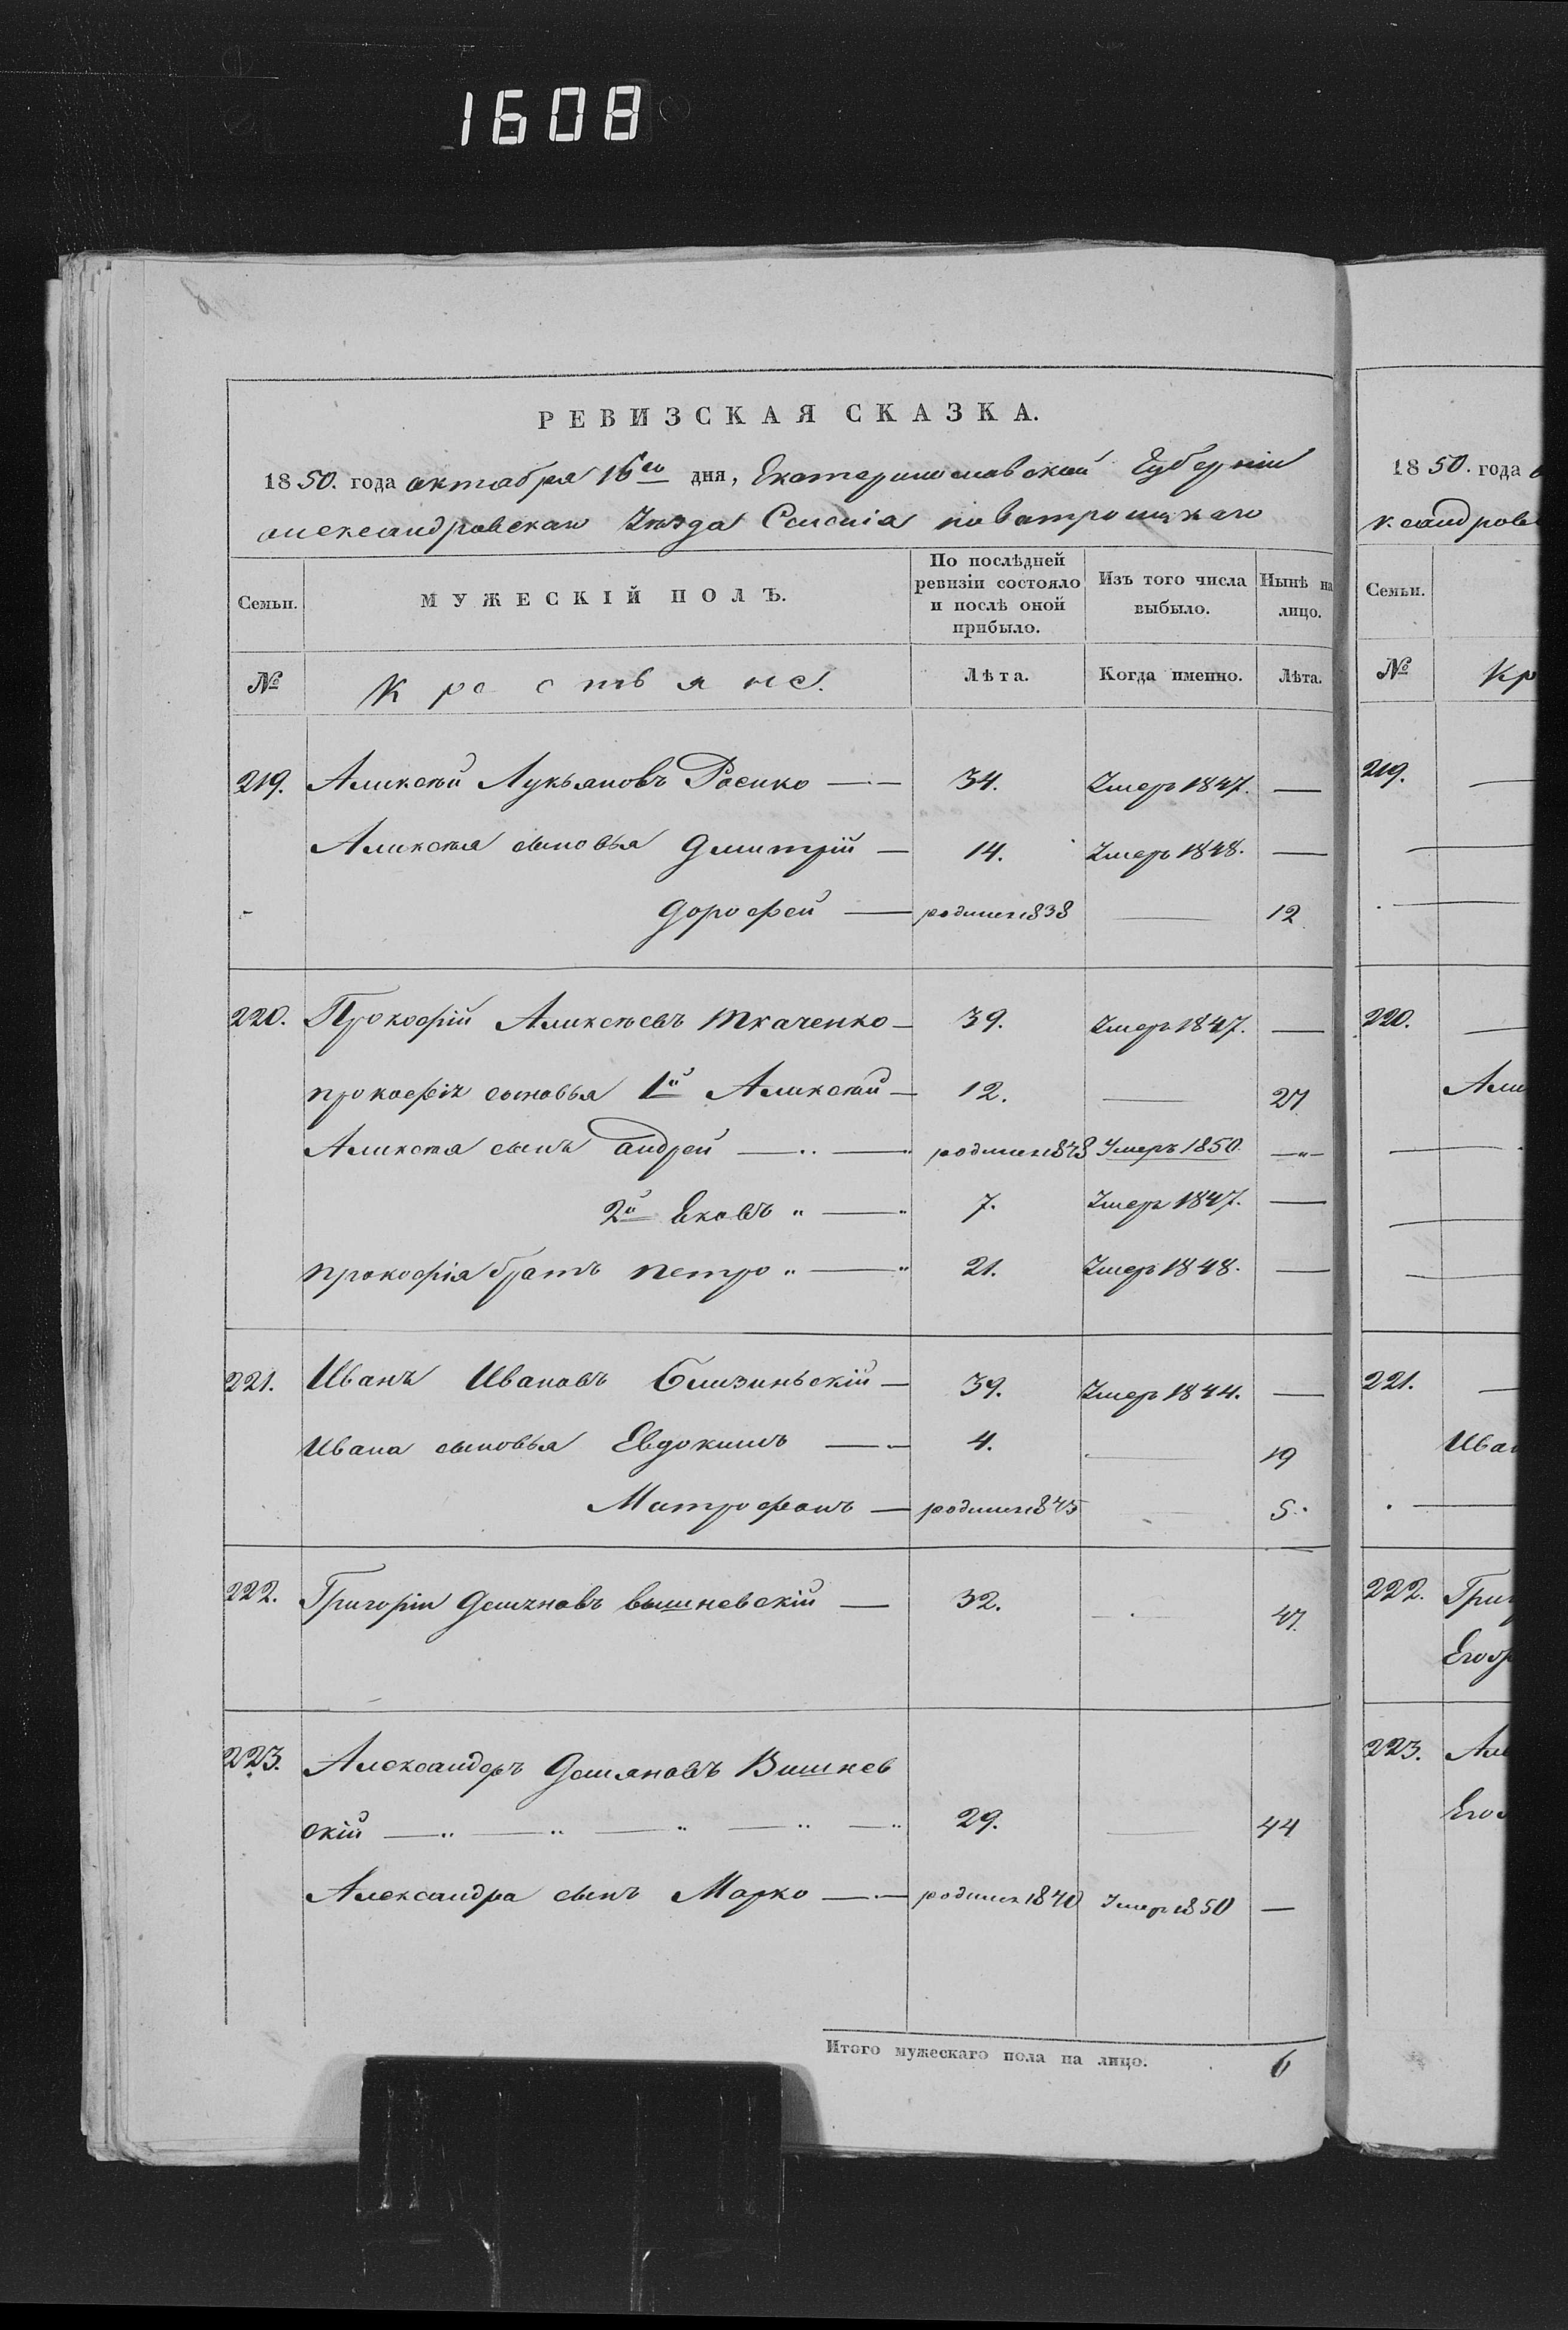 1608
РЕВИЗСКАЯ СКАЗКА.
1850. года октабря 16го дня, Екатеринославской Губерніи
александровскаго Уезда Селенія новатроицкаго
Семьи. МУЖЕСКІЙ ПОЛЪ. По послѣдней ревизіи состояло и послѣ оной прибыло. Изъ того числа выбыло. Нынѣ на лицо.
№ Крестьяне. Лѣта. Когда именно. Лѣта.
219. Аликсѣй Лукьяновъ Расико — 34. Умеръ 1847. —
Аликсѣя сыновья Дмитрій — 14. Умеръ 1848. —
Дорофей — родился 1838 — 12
220. Прокофій Аликсѣевъ Ткаченко — 39. Умеръ 1847. —
прокофія сыновья 1й Аликсѣй — 12. — 27
Аликсѣя сынъ андрей — родился 1848 Умеръ 1850. —
2й Яковъ — 7. Умеръ 1847. —
прокофія братъ петро — 21. Умеръ 1848. —
221. Иванъ Ивановъ Близиньскій — 39. Умеръ 1844. —
Ивана сыновья Евдокимъ — 4. — 19
Митрофанъ — родился 1845 — 5.
222. Григорій Демяновъ вышневскій — 32. — 47.
223. Александеръ Демяновъ Вишнев
скій — 29. — 44
Александра сынъ Марко — родился 1840 Умеръ 1850 —
Итого мужескаго пола на лицо. 6
1850. года
ксандров
Семьи.
№ Кр
219. —
220. —
Али
221. —
Иван
222. Григ
Егор
223. Але
Его